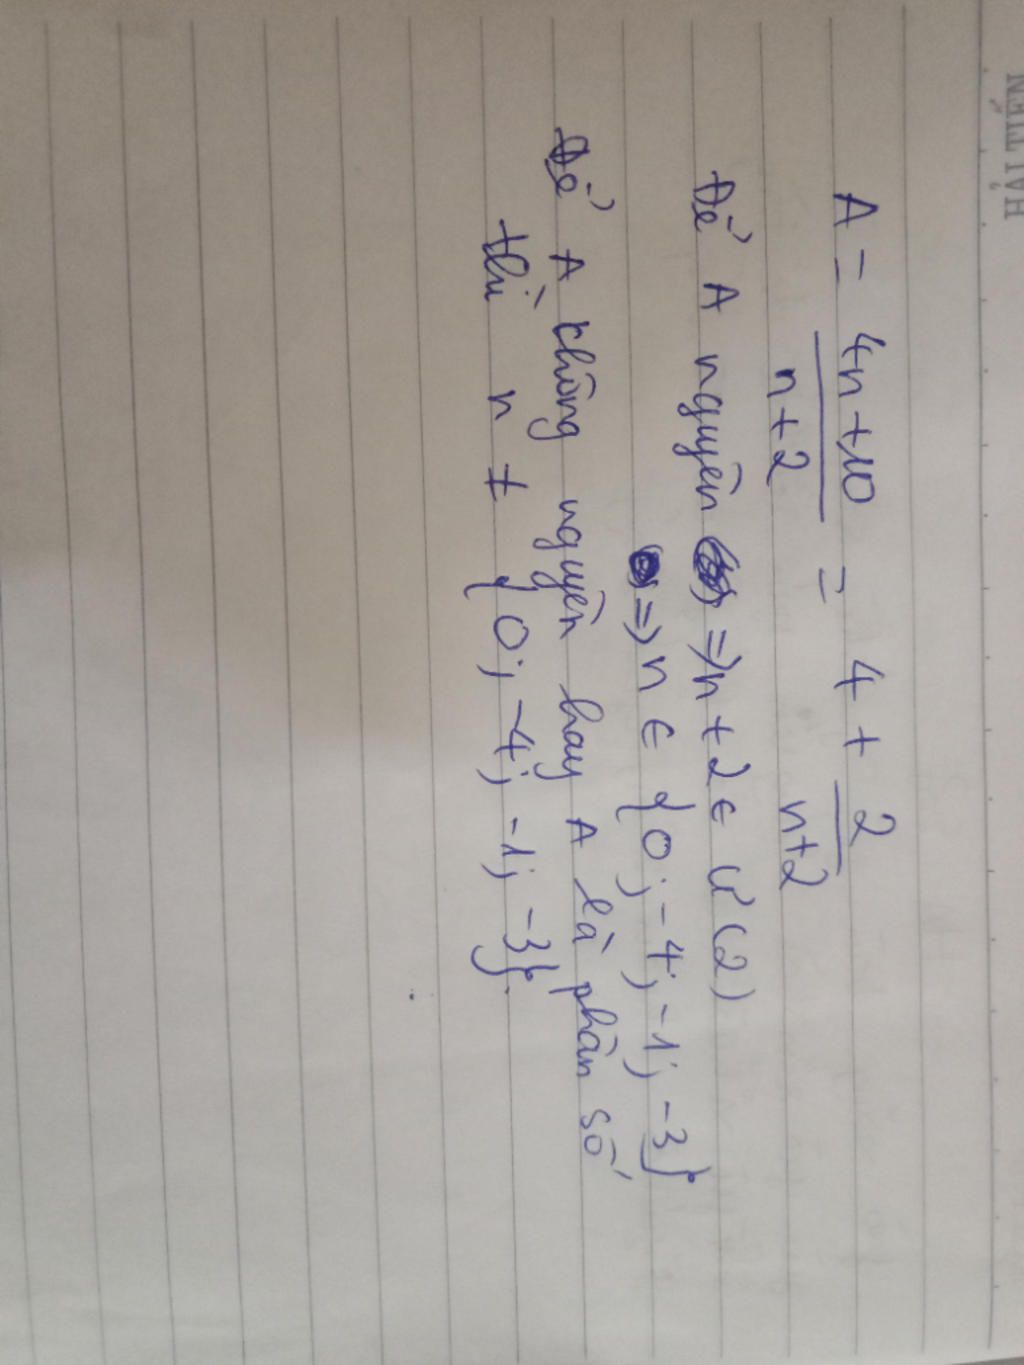 HẢI TIẾN
A = 4n+10 / n+2 = 4 + 2 / n+2
Để A nguyên => n+2 ∈ Ư(2)
=> n ∈ {0; -4; -1; -3}
Để A không nguyên hay A là phân số
thì n ≠ {0; -4; -1; -3}.